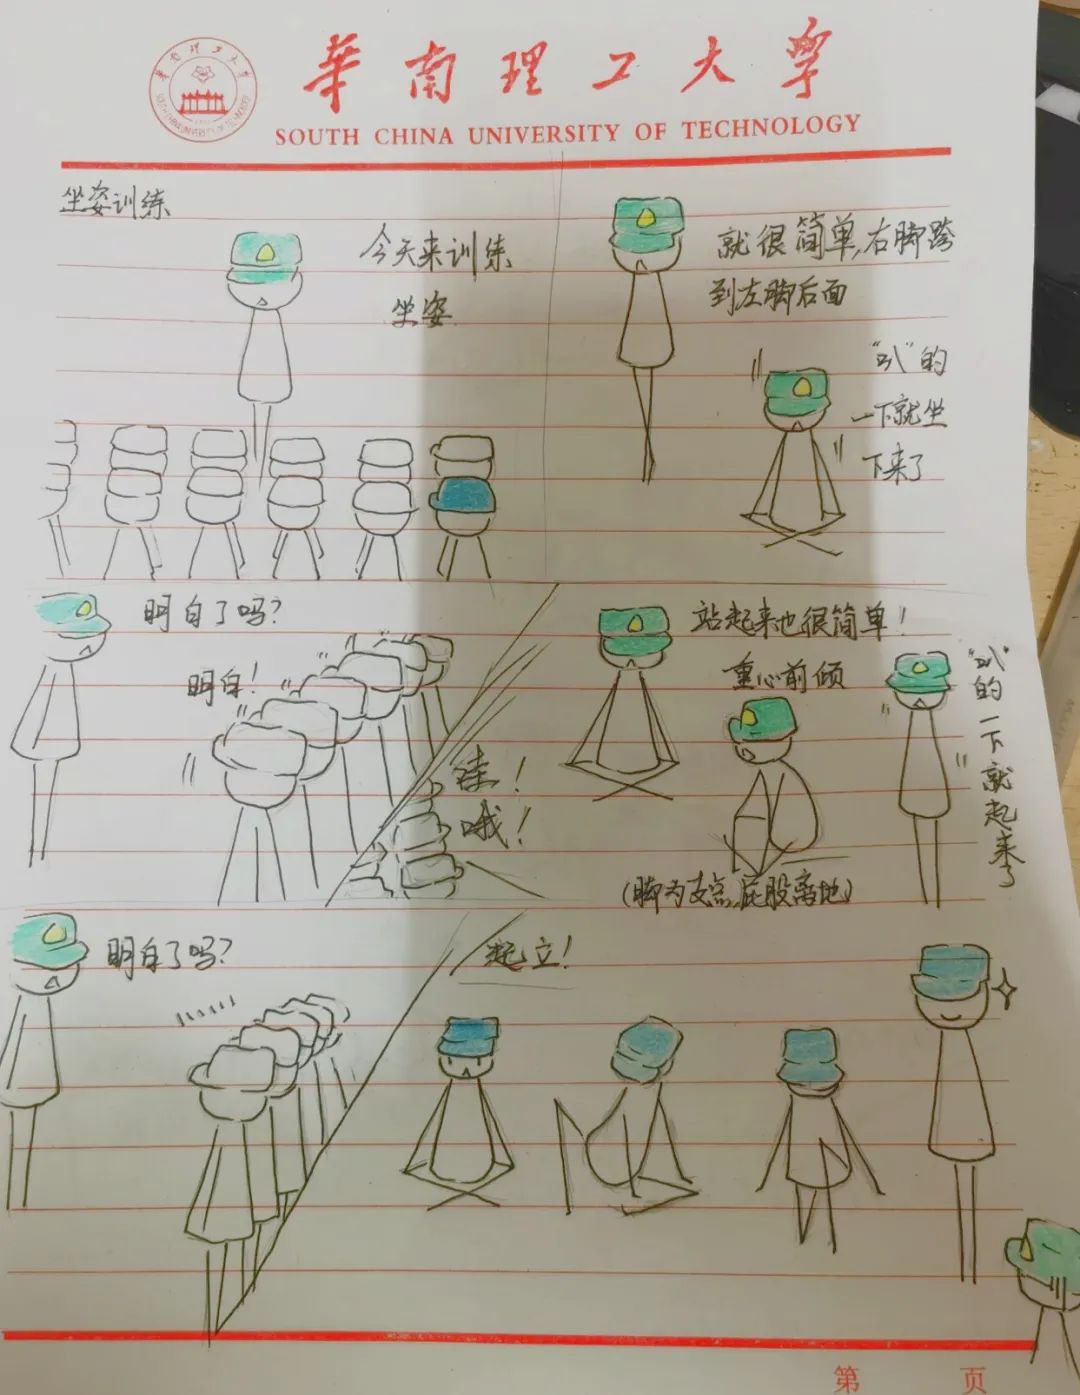 華南理工大學
SOUTH CHINA UNIVERSITY OF TECHNOLOGY
坐姿训练
今天来训练
坐姿
就很简单,右脚跨
到左脚后面
"叭"的
一下就坐
下来了
明白了吗?
明白!
哇!
哦!
站起来也很简单!
重心前倾
(脚为支点,屁股离地)
"叭"的一下就起来了
明白了吗?
起立!
第 页